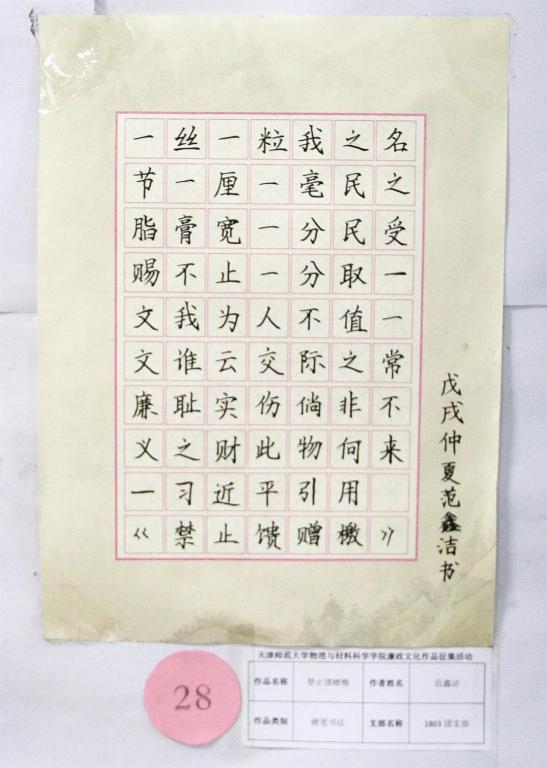 一丝一粒我之名
节一厘一毫民之
脂膏宽一分民受
赐不止一分取一
文我为人不值一
文谁云交际之常
廉耻实伤倘非不
义之财此物何来
—习近平引用
《禁止馈赠檄》
戊戌仲夏范鑫洁书
28
天津师范大学物理与材料科学学院廉政文化作品征集活动
作品名称 禁止馈赠檄 作者姓名 范鑫洁
作品类别 硬笔书法 支部名称 1803团支部